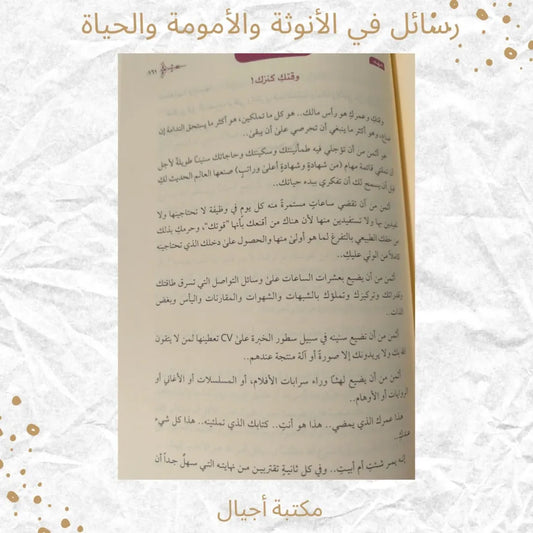 رسائل في الأنوثة والأمومة والحياة
وقتكِ كنزك!
وقتكِ وعمركِ هو رأس مالك.. هو كل ما تملكين، هو أكثر ما يستحق الندامة إن
ضاع، وهو أكثر ما ينبغي أن تحرصي على أن يبقى..
هو أثمن من أن تؤجلي فيه طمأنينتكِ وسكينتك وحاجاتك سنينًا طويلةً لأجل
أن تنتهي قائمة مهام (من شهادةٍ وشهادةٍ أعلى وراتبٍ) صنعها العالم الحديث لكِ
قبل أن يسمح لك أن تفكري ببدء حياتك..
أثمن من أن تقضي ساعاتٍ مستمرةً منه كل يوم في وظيفة لا تحتاجينها ولا
تفيدين بها ولا تستفيدين منها لأن هناك من أقنعك بأنها "قوتك"، وحرمكِ بذلك
من حقك الطبيعي بالتفرغ لما هو أولى منها والحصول على دخلك الذي تحتاجينه
كاملًا من الولي عليكِ..
أثمن من أن يضيع بعشرات الساعات على وسائل التواصل التي تسرق طاقتك
وقدراتك وتركيزك وتملؤك بالشبهات والشهوات والمقارنات واليأس وبغض
الذات..
أثمن من أن تضيع سنينه في سبيل سطور الخبرة على CV تعطينها لمن لا يتقون
الله بكِ ولا يريدونك إلا صورةً أو آلة منتجة عندهم..
أثمن من أن يضيع لهثًا وراء سرابات الأفلام، أو المسلسلات أو الأغاني أو
الروايات أو الأوهام..
هذا عمرك الذي يمضي.. هذا هو أنتِ.. كتابك الذي تملئينه.. هذا كل شيء
عندكِ..
إنه يمر شئتِ أم أبيتِ.. وفي كل ثانيةٍ تقتربين من نهايته التي سهلٌ جداً أن
مكتبة أجيال